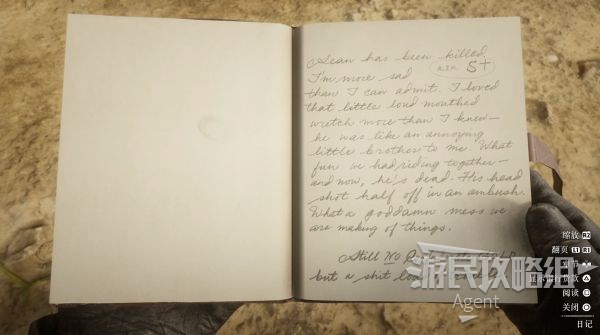 Sean has been killed.
I'm more sad
than I can admit. I loved
that little loud mouthed
wretch more than I knew—
he was like an annoying
little brother to me. What
fun we had, riding together—
and now, he's dead. His head
shot half off in an ambush.
What a goddamn mess we
are making of things.
Still No
but a shit
游民攻略组
Agent
缩放 R2
翻页 L1 R1
阅读
关闭
日记